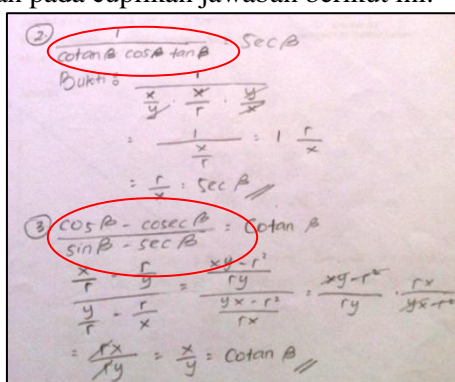 an pada cuplikan jawaban berikut ini.
② 1 / (cotan β cos β tan β) = sec β
Bukti : 1 / (x/y . x/r . y/x)
= 1 / (x/r) = 1 r/x
= r/x = sec β //
③ (cos β - cosec β) / (sin β - sec β) = Cotan β
(x/r - r/y) / (y/r - r/x) = ((xy - r²)/ry) / ((yx - r²)/rx) = (xy - r²)/ry . rx/(yx - r²)
= rx/ry = x/y = Cotan β //